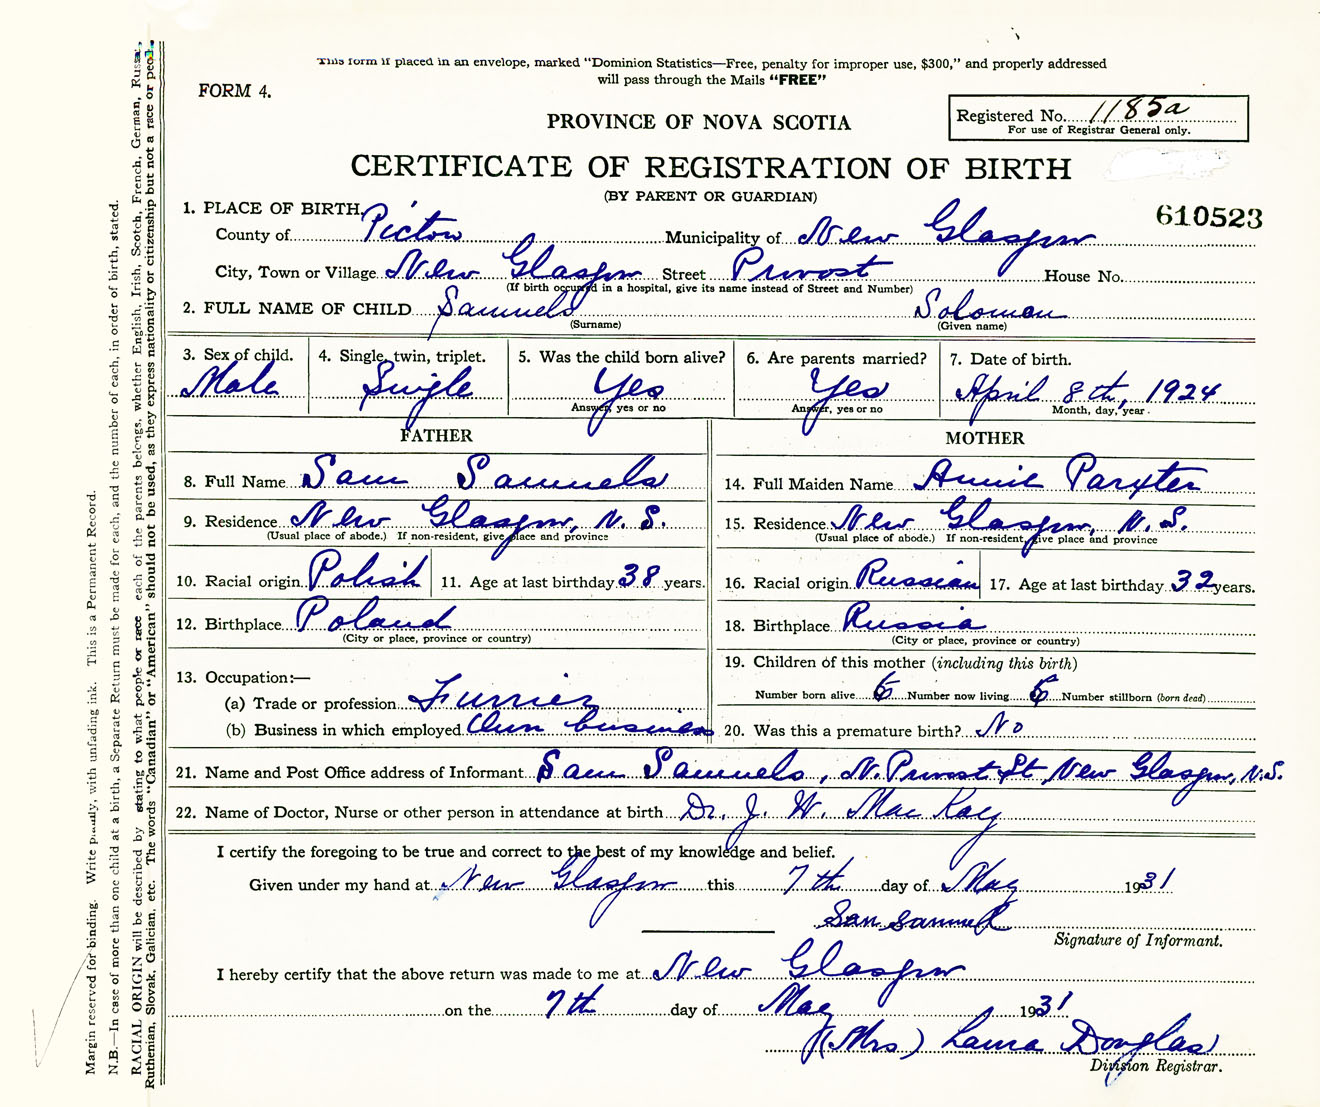 This form if placed in an envelope, marked "Dominion Statistics—Free, penalty for improper use, $300," and properly addressed
will pass through the Mails "FREE"
FORM 4.
Registered No. 1185a
For use of Registrar General only.
PROVINCE OF NOVA SCOTIA
CERTIFICATE OF REGISTRATION OF BIRTH
(BY PARENT OR GUARDIAN)
610523
1. PLACE OF BIRTH.
County of Pictou Municipality of New Glasgow
City, Town or Village New Glasgow Street Provost House No.
(If birth occurred in a hospital, give its name instead of Street and Number)
2. FULL NAME OF CHILD Samuels Soloman
(Surname) (Given name)
3. Sex of child. 4. Single, twin, triplet. 5. Was the child born alive? 6. Are parents married? 7. Date of birth.
Male Single Yes Yes April 8th, 1924
Answer, yes or no Answer, yes or no Month, day, year
FATHER MOTHER
8. Full Name Sam Samuels 14. Full Maiden Name Annie Paryter
9. Residence New Glasgow, N.S. 15. Residence New Glasgow, N.S.
(Usual place of abode.) If non-resident, give place and province (Usual place of abode.) If non-resident, give place and province
10. Racial origin Polish 11. Age at last birthday 38 years. 16. Racial origin Russian 17. Age at last birthday 32 years.
12. Birthplace Poland 18. Birthplace Russia
(City or place, province or country) (City or place, province or country)
13. Occupation:— 19. Children of this mother (including this birth)
(a) Trade or profession Furrier Number born alive Number now living Number stillborn (born dead)
(b) Business in which employed Own business 20. Was this a premature birth? No
21. Name and Post Office address of Informant Sam Samuels, N. Provost St New Glasgow, N.S.
22. Name of Doctor, Nurse or other person in attendance at birth Dr. J. W. MacKay
I certify the foregoing to be true and correct to the best of my knowledge and belief.
Given under my hand at New Glasgow this 7th day of May 1931
San Samuel
Signature of Informant.
I hereby certify that the above return was made to me at New Glasgow
on the 7th day of May 1931
(Mrs) Laura Douglas
Division Registrar.
Margin reserved for binding. Write plainly, with unfading ink. This is a Permanent Record.
N.B.—In case of more than one child at a birth, a Separate Return must be made for each, and the number of each, in order of birth, stated.
RACIAL ORIGIN will be described by stating to what people or race each of the parents belongs, whether English, Irish, Scotch, French, German, Russian,
Ruthenian, Slovak, Galician, etc. The words "Canadian" or "American" should not be used, as they express nationality or citizenship but not a race or people.